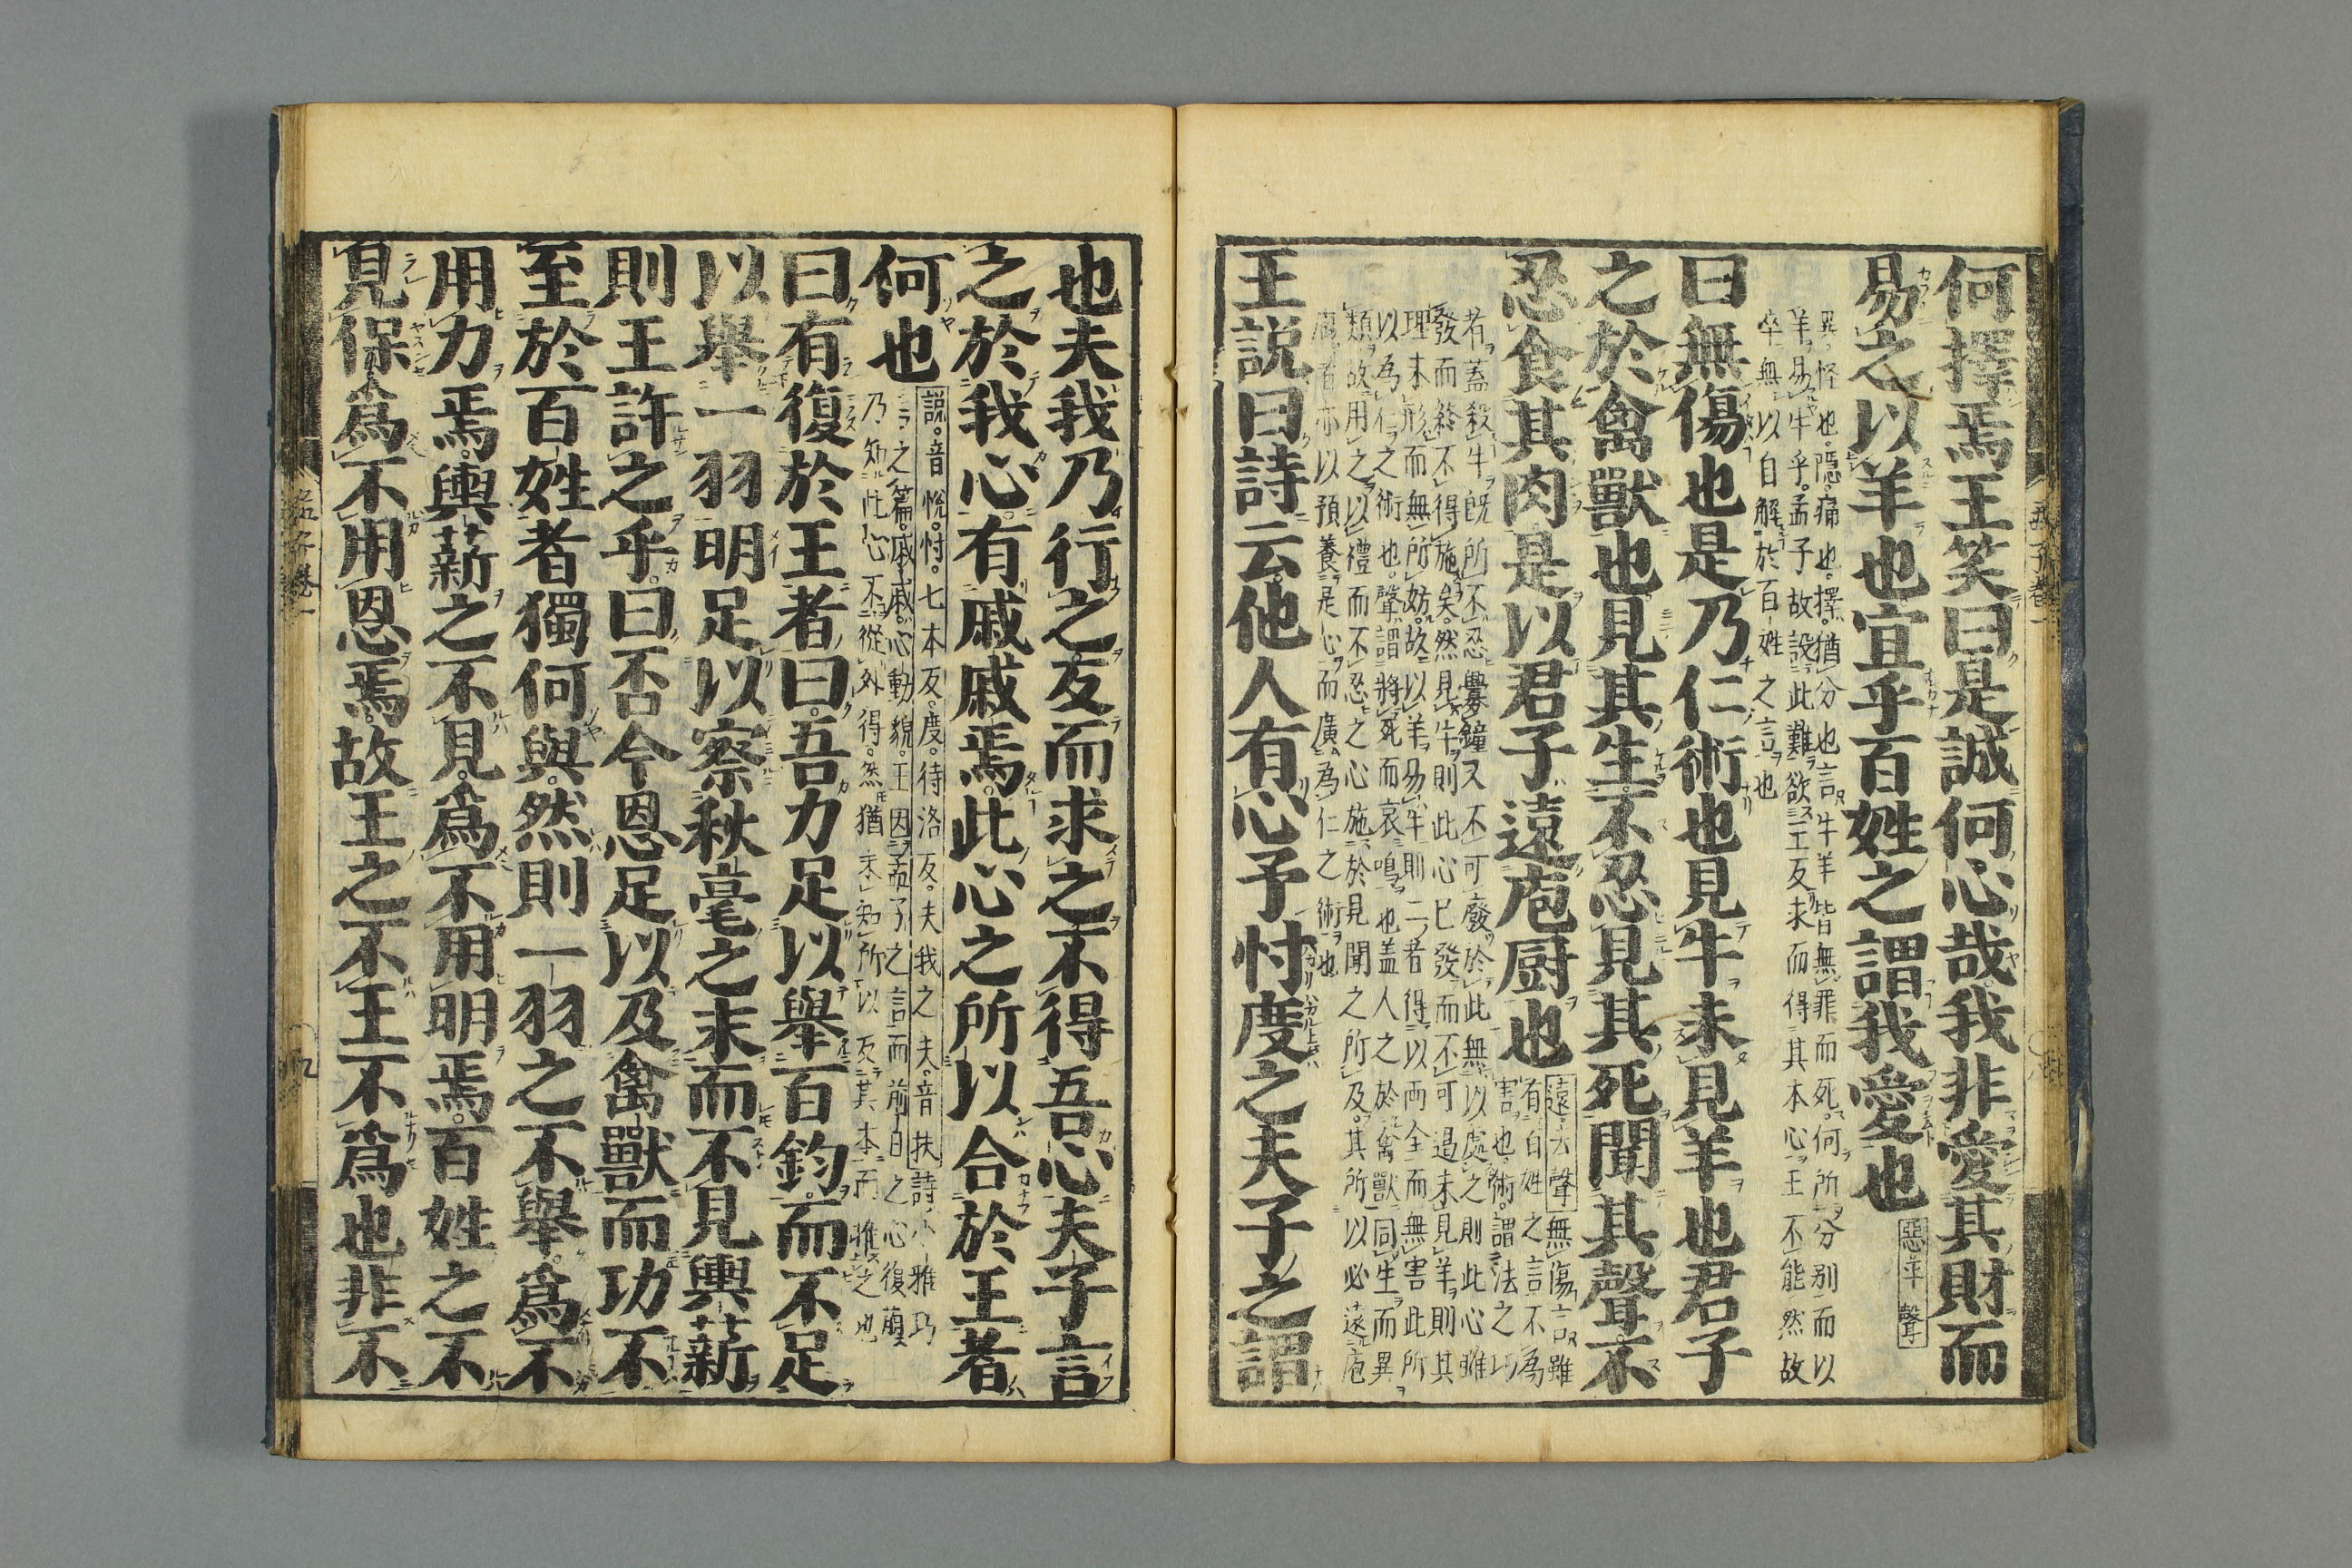 何擇焉王笑曰是誠何心哉我非愛其財而
易之以羊也宜乎百姓之謂我愛也
惡平聲
異怪也隱痛也擇猶分也言牛羊皆無罪而死何所分別而以
羊易牛乎孟子故設此難欲王反求而得其本心王不能然故
卒無以自解於百姓之言也
曰無傷也是乃仁術也見牛未見羊也君子
之於禽獸也見其生不忍見其死聞其聲不
忍食其肉是以君子遠庖厨也
遠去聲無傷言雖
有百姓之言不為
害也術謂法之巧
者蓋殺牛既所不忍釁鐘又不可廢於此無以處之則此心雖
發而終不得施矣然見牛則此心已發而不可遏未見羊則其
理未形而無所妨故以羊易牛則二者得以両全而無害此所
以為仁之術也聲謂將死而哀鳴也盖人之於禽獸同生而異
類故用之以禮而不忍之心施於見聞之所及其所以必遠庖
厨者亦以預養是心而廣為仁之術也
王説曰詩云他人有心予忖度之夫子之謂
也夫我乃行之反而求之不得吾心夫子言
之於我心有戚戚焉此心之所以合於王者
何也
説音悅忖七本反度待洛反夫我之夫音扶詩小雅巧
言之篇戚戚心動貌王因孟子之言而前日之心復萌
乃知此心不從外得然猶未知所以反其本而推之也
曰有復於王者曰吾力足以舉百鈞而不足
以舉一羽明足以察秋毫之末而不見輿薪
則王許之乎曰否今恩足以及禽獸而功不
至於百姓者獨何與然則一羽之不舉為不
用力焉輿薪之不見為不用明焉百姓之不
見保為不用恩焉故王之不王不為也非不